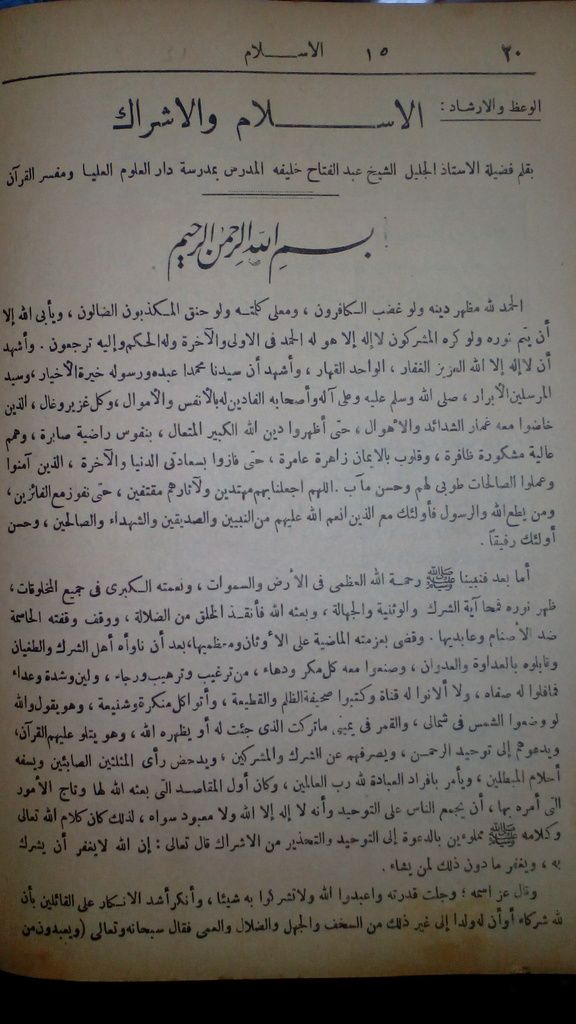 ٣٠ ١٥ الاســـلام
الوعظ والارشاد : الاســـلام والاشراك
بقلم فضيلة الاستاذ الجليل الشيخ عبد الفتاح خليفه المدرس بمدرسة دار العلوم العليا ومفسر القرآن
بسم الله الرحمن الرحيم
الحمد لله مظهر دينه ولو غضب الكافرون ، ومعلى كلمته ولو حنق المكذبون الضالون ، ويأبى الله إلا
أن يتم نوره ولو كره المشركون لا إله إلا هو له الحمد فى الاولى والآخرة وله الحكم وإليه ترجعون . وأشهد
أن لا إله إلا الله العزيز الغفار ، الواحد القهار ، وأشهد أن سيدنا محمدا عبده ورسوله خيرة الأخيار ، وسيد
المرسلين الأبرار ، صلى الله وسلم عليه وعلى آله وأصحابه الفادين له بالأنفس والأموال ، وكل غزير وغال ، الذين
خاضوا معه غمار الشدائد والأهوال ، حتى أظهروا دين الله الكبير المتعال ، بنفوس راضية صابرة ، وهمم
عالية مشكورة ظافرة ، وقلوب بالايمان زاهرة عامرة ، حتى فازوا بسعادتى الدنيا والآخرة ، الذين آمنوا
وعملوا الصالحات طوبى لهم وحسن مآب . اللهم اجعلنا بهم مهتدين ولآثارهم مقتفين ، حتى نفوز مع الفائزين ،
ومن يطع الله والرسول فأولئك مع الذين انعم الله عليهم من النبيين والصديقين والشهداء والصالحين ، وحسن
أولئك رفيقا .
أما بعد فنبينا ﷺ رحمة الله العظمى فى الأرض والسموات ، ونعمته الكبرى فى جميع المخلوقات ،
ظهر نوره فمحا آية الشرك والوثنية والجهالة ، وبعثه الله فأنقذ الخلق من الضلالة ، ووقف وقفته الحاسمة
ضد الأصنام وعابديها . وقضى بعزمته الماضية على الأوثان ومعظميها ، بعد أن ناوأه أهل الشرك والطغيان
وقابلوه بالعداوة والعدوان ، وصنعوا معه كل مكر ودهاء ، من ترغيب وترهيب ورجاء ، ولين وشدة وعداء
فما فلوا له صفاه ، ولا ألانوا له قناة وكتبوا صحيفة الظلم والقطيعة ، وأتوا كل منكرة وشنيعة ، وهو يقول والله
لو وضعوا الشمس فى شمالى ، والقمر فى يمينى ما تركت الذى جئت له أو يظهره الله ، وهو يتلو عليهم القرآن ،
ويدعوهم إلى توحيد الرحمن ، ويصرفهم عن الشرك والمشركين ، ويدحض رأى المثلثين الصابئين ويسفه
أحلام المبطلين ، ويأمر بافراد العبادة لله رب العالمين ، وكان أول المقاصد التى بعثه الله لها وتاج الأمور
التى أمره بها ، أن يجمع الناس على التوحيد وأنه لا إله إلا الله ولا معبود سواه ، لذلك كان كلام الله تعالى
وكلامه ﷺ مملوءين بالدعوة إلى التوحيد والتحذير من الاشراك قال تعالى : إن الله لايغفر أن يشرك
به ، ويغفر ما دون ذلك لمن يشاء .
وقال عز اسمه ؛ وجلت قدرته واعبدوا الله ولا تشركوا به شيئا ، وأنكر أشد الانكار على القائلين بأن
لله شركاء أو أن له ولدا إلى غير ذلك من السخف والجهل والضلال والعمى فقال سبحانه وتعالى (ويعبدون من